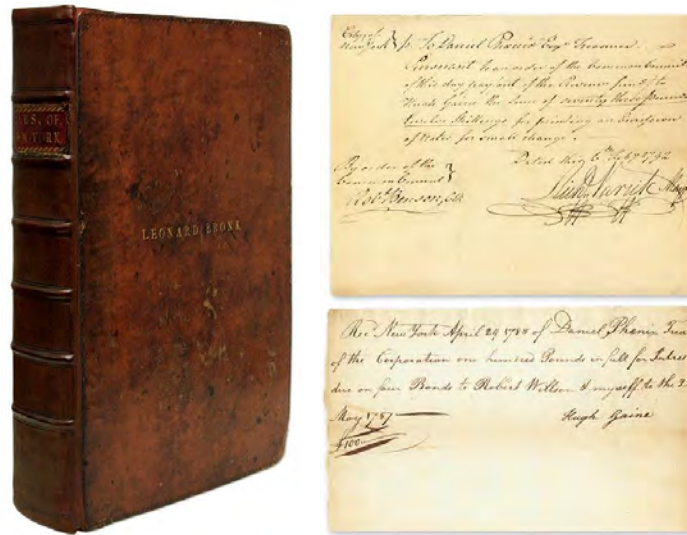 LAWS. OF.
N-YORK.
LEONARD BRONK
City of
New York } ss. To Daniel Phoenix Esqr. Treasurer.
Pursuant to an order of the Common Council
of this day pay out of the Revenue fund to
Hugh Gaine the Sum of seventy three pounds
twelve Shillings for printing an Emission
of Notes for small change.
Dated this 6th Feby. 1792
By order of the
Common Council }
Robt. Benson, Clk
Richd. Varick Mayor
Recd. New York April 29 1788 of Daniel Phenix Trea
of the Corporation one hundred Pounds in full for Intres
due on four Bonds to Robert Willson & myself to the 2
May 1787
Hugh Gaine
£100